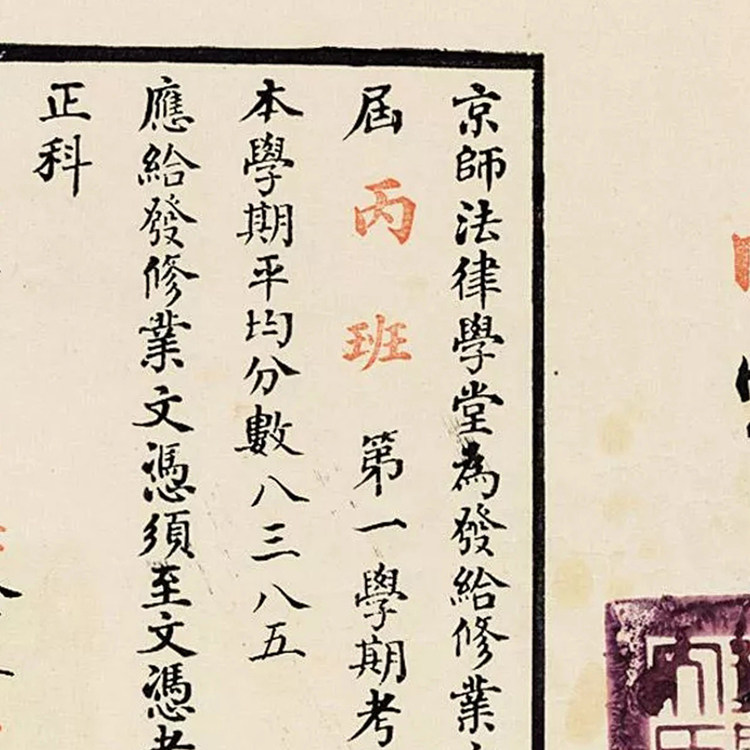 京師法律學堂為發給修業
屆丙班第一學期考
本學期平均分數八三八五
應給發修業文憑須至文憑者
正科